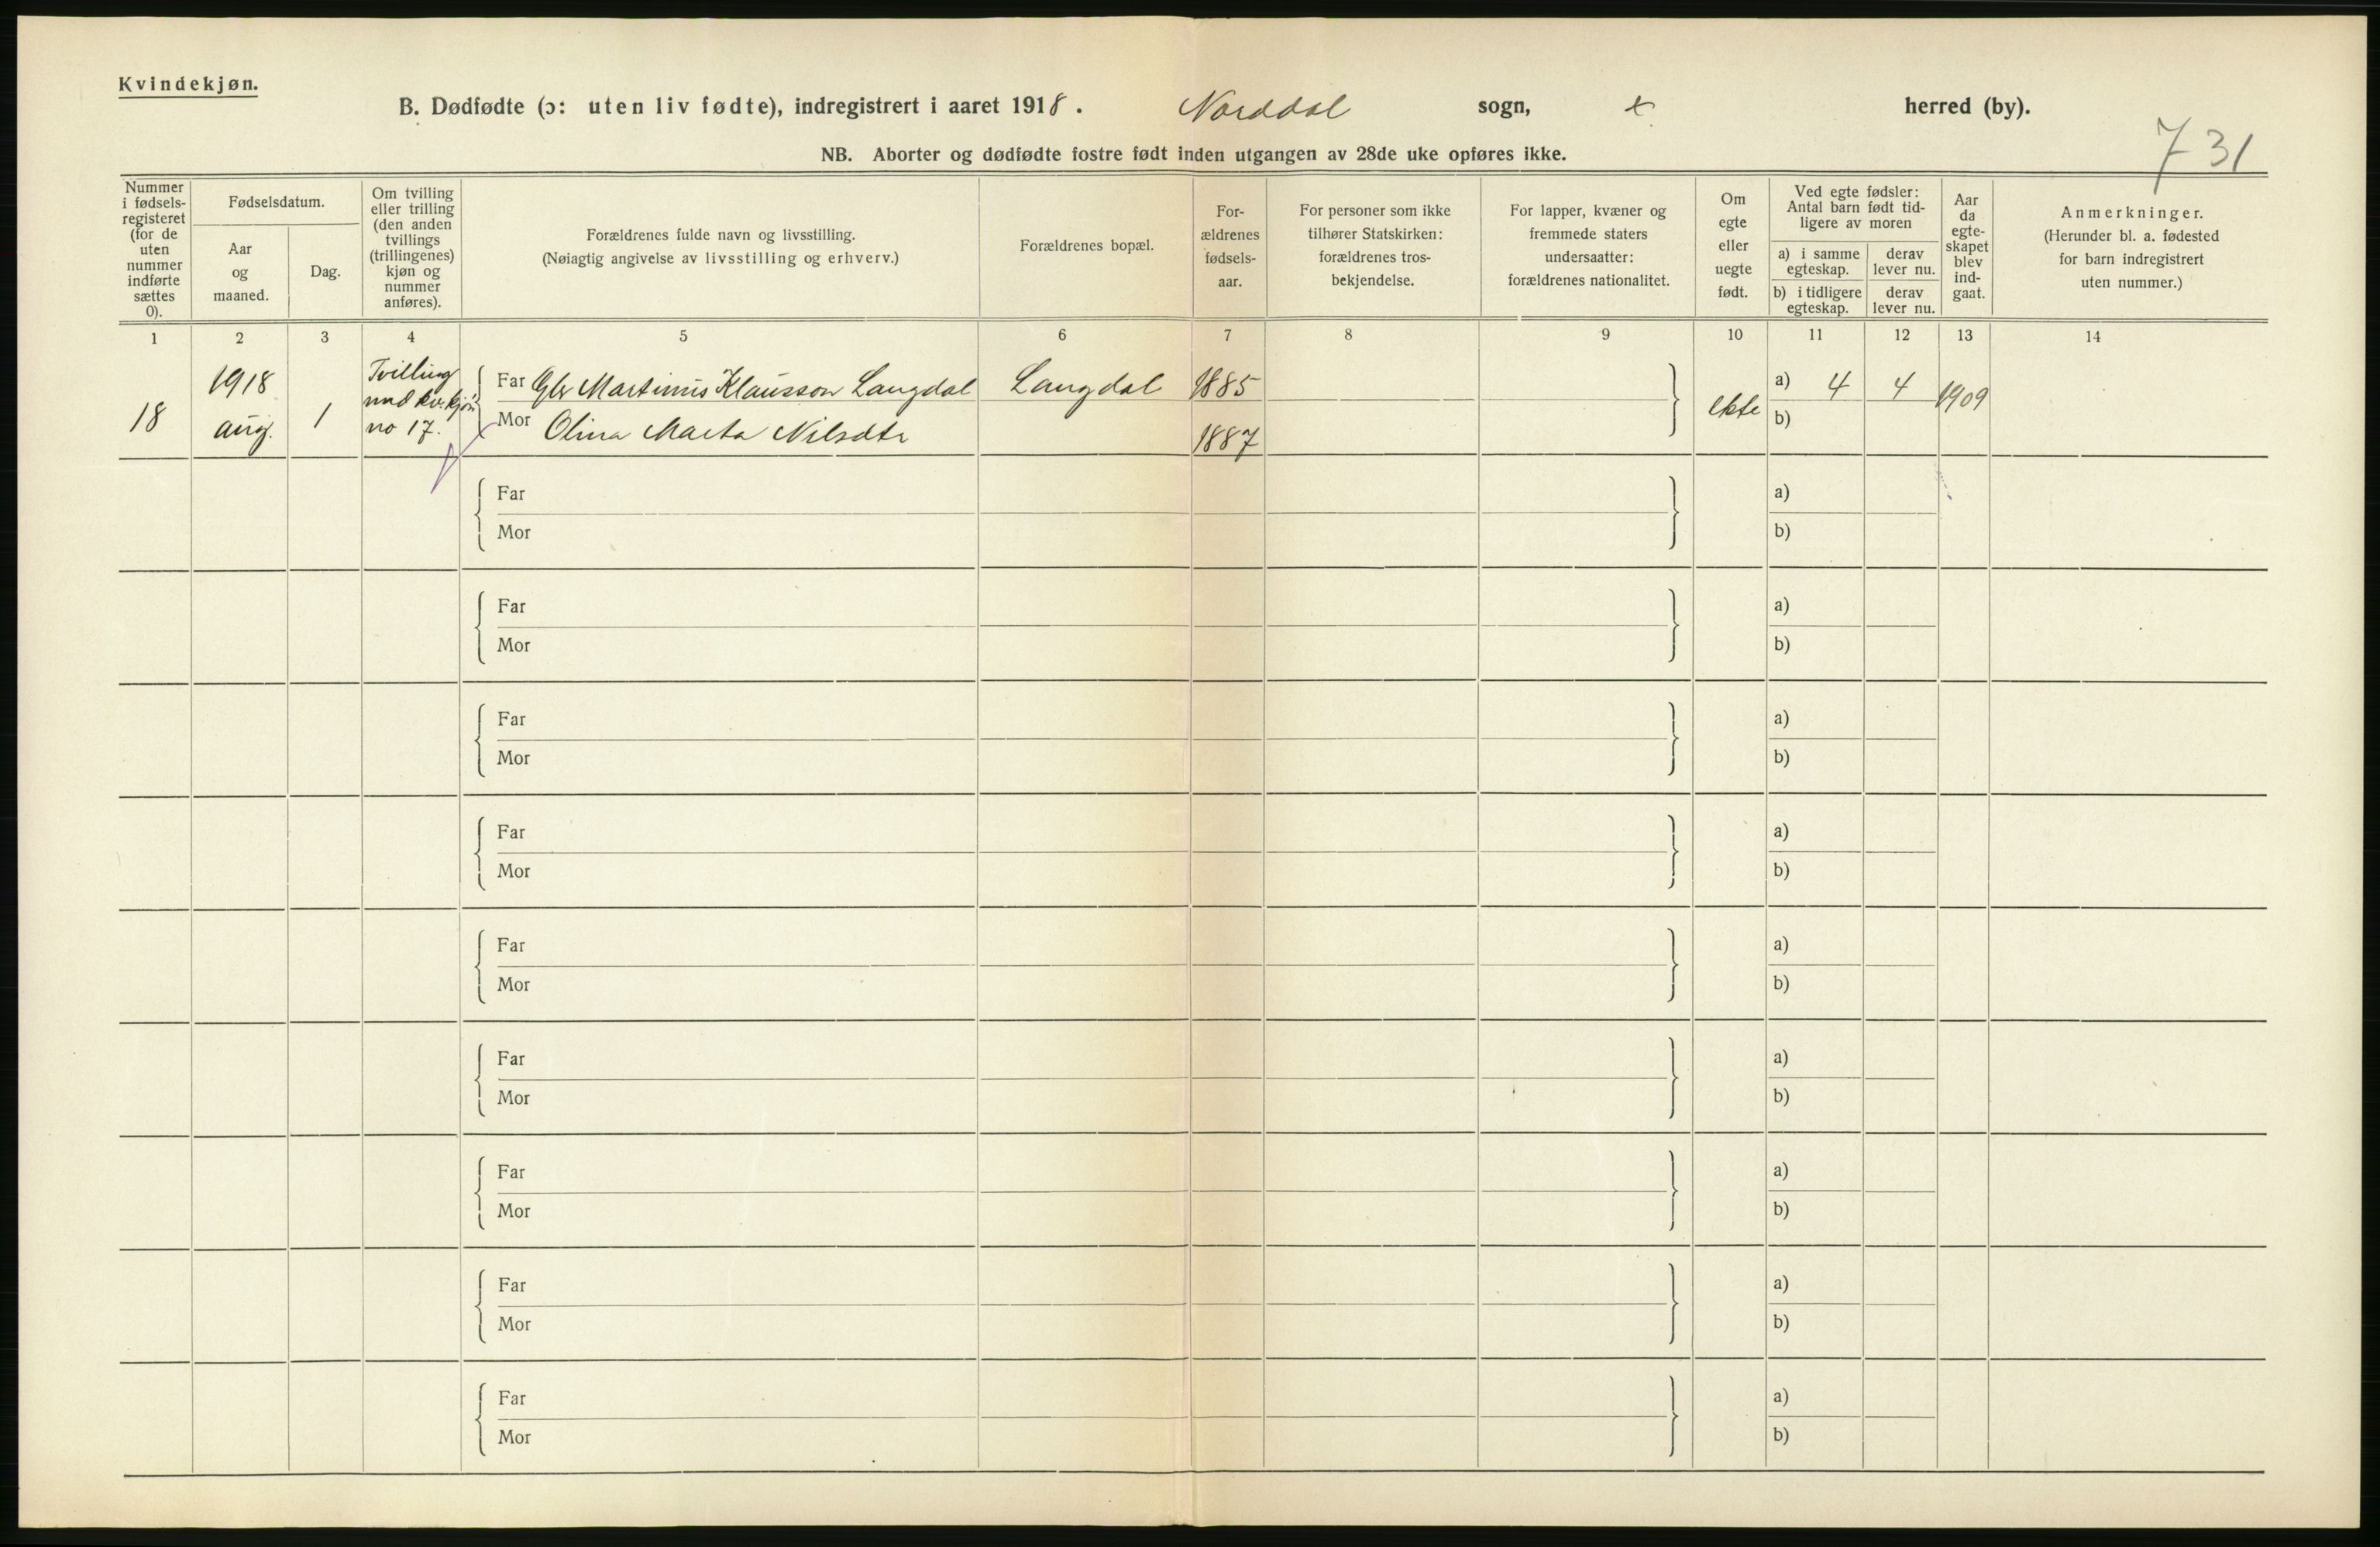 Kvindekjøn.
B. Dødfødte (ɔ: uten liv fødte), indregistrert i aaret 1918. Norddal sogn, x herred (by).
NB. Aborter og dødfødte fostre født inden utgangen av 28de uke opføres ikke.
731
Nummer i fødsels-registeret (for de uten nummer indførte sættes 0).
Fødselsdatum.
Aar og maaned.
Dag.
Om tvilling eller trilling (den anden tvillings (trillingenes) kjøn og nummer anføres).
Forældrenes fulde navn og livsstilling.
(Nøiagtig angivelse av livsstilling og erhverv.)
Forældrenes bopæl.
For-ældrenes fødsels-aar.
For personer som ikke tilhører Statskirken: forældrenes tros-bekjendelse.
For lapper, kvæner og fremmede staters undersaatter: forældrenes nationalitet.
Om egte eller uegte født.
Ved egte fødsler: Antal barn født tid-ligere av moren
a) i samme egteskap.
derav lever nu.
b) i tidligere egteskap.
derav lever nu.
Aar da egte-skapet blev ind-gaat.
Anmerkninger.
(Herunder bl. a. fødested for barn indregistrert uten nummer.)
1 2 3 4 5 6 7 8 9 10 11 12 13 14
18
1918
aug.
1
Tvilling
med kv. kjøn
no 17.
Far Gbr Martinus Klausson Langdal Langdal 1885
Mor Olina Marta Nilsdtr 1887
ekte
a) 4 4 1909
b)
Far a)
Mor b)
Far a)
Mor b)
Far a)
Mor b)
Far a)
Mor b)
Far a)
Mor b)
Far a)
Mor b)
Far a)
Mor b)
Far a)
Mor b)
Far a)
Mor b)